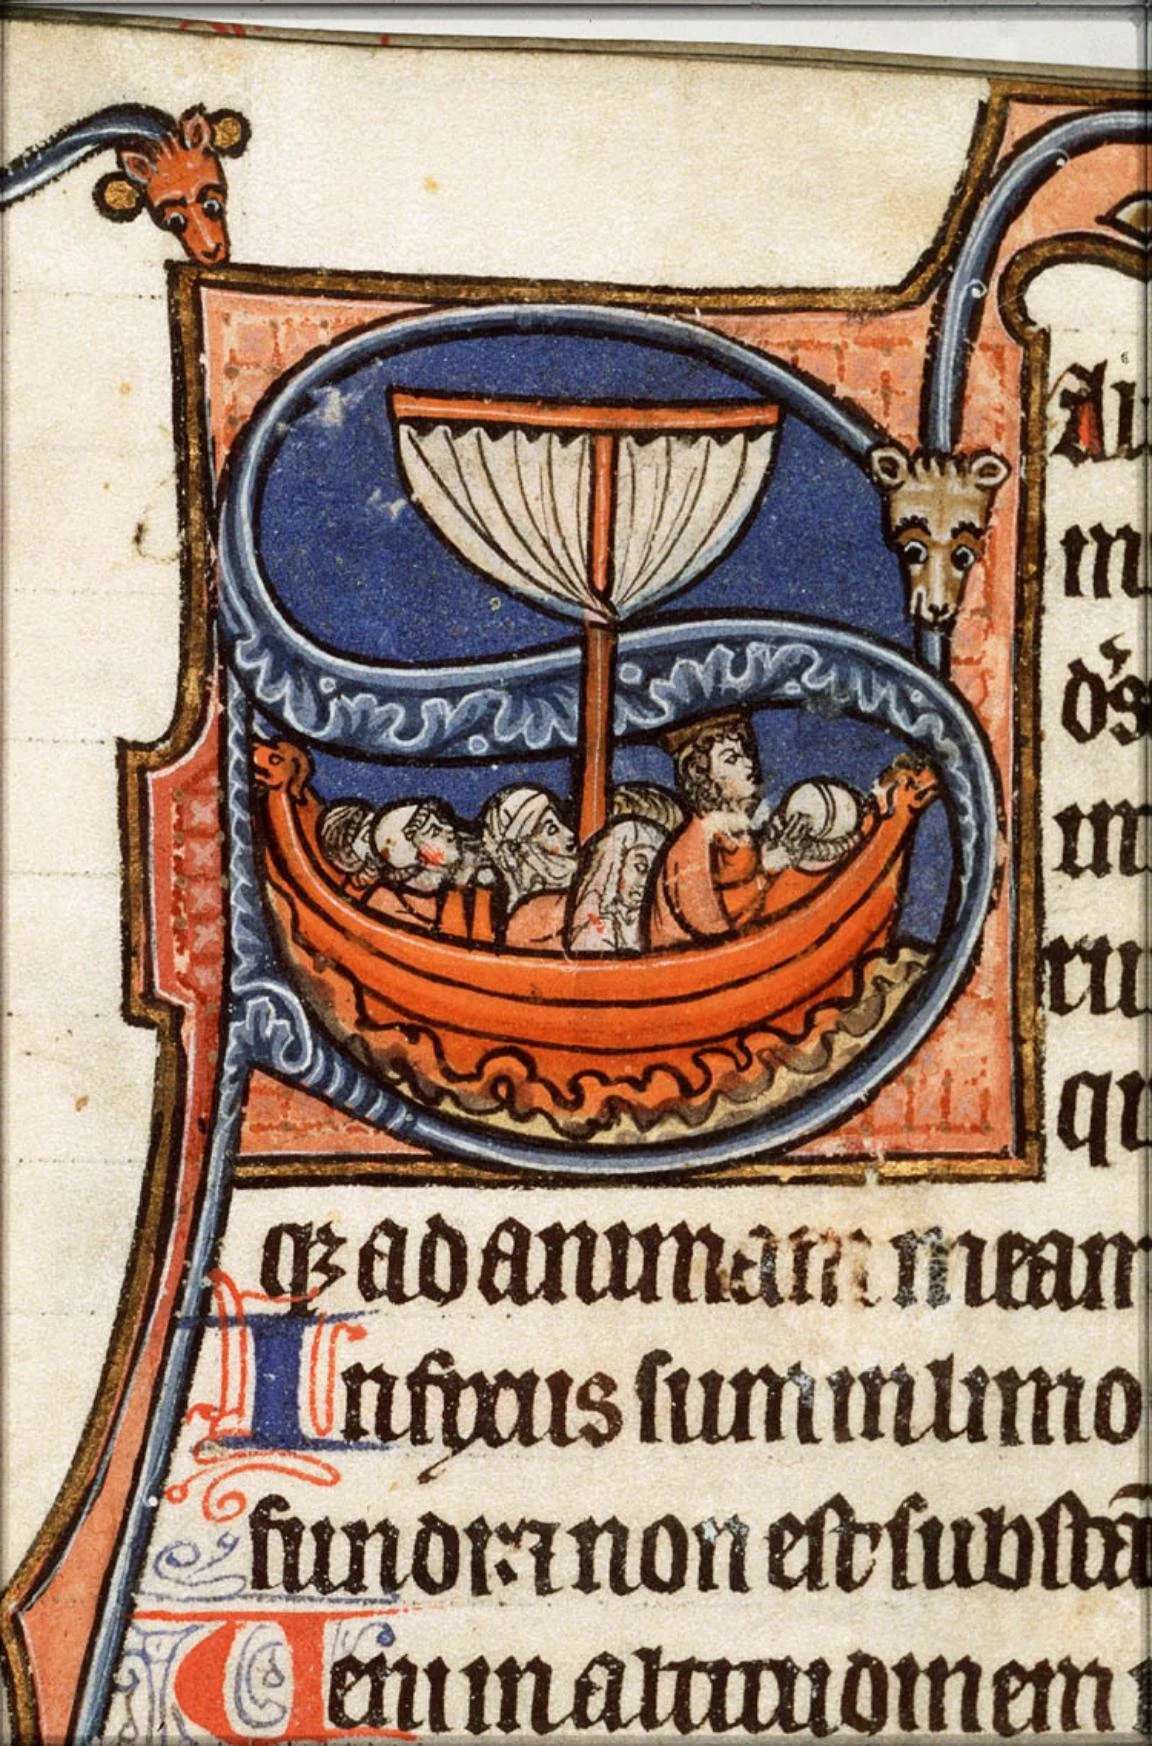 S
Al
m
d's
in
ru
qu
qꝫ ad animam meam
Infixus sum in limo
fundi: ⁊ non est substā
Ueni in altitudinem